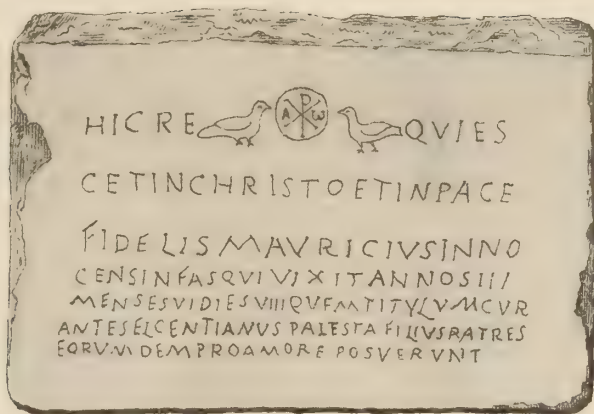 HICRE QVIES
CETINCHRISTOETINPACE
FIDELISMAVRICIVSINNO
CENSINFASQVIVIXITANNOSIII
MENSESVIDIESVIIIQVEMTITVLVMCVR
ANTESELCENTIANVS PALESTA FILIVSRATRES
EORVMDEMPROAMORE POSVERVNT